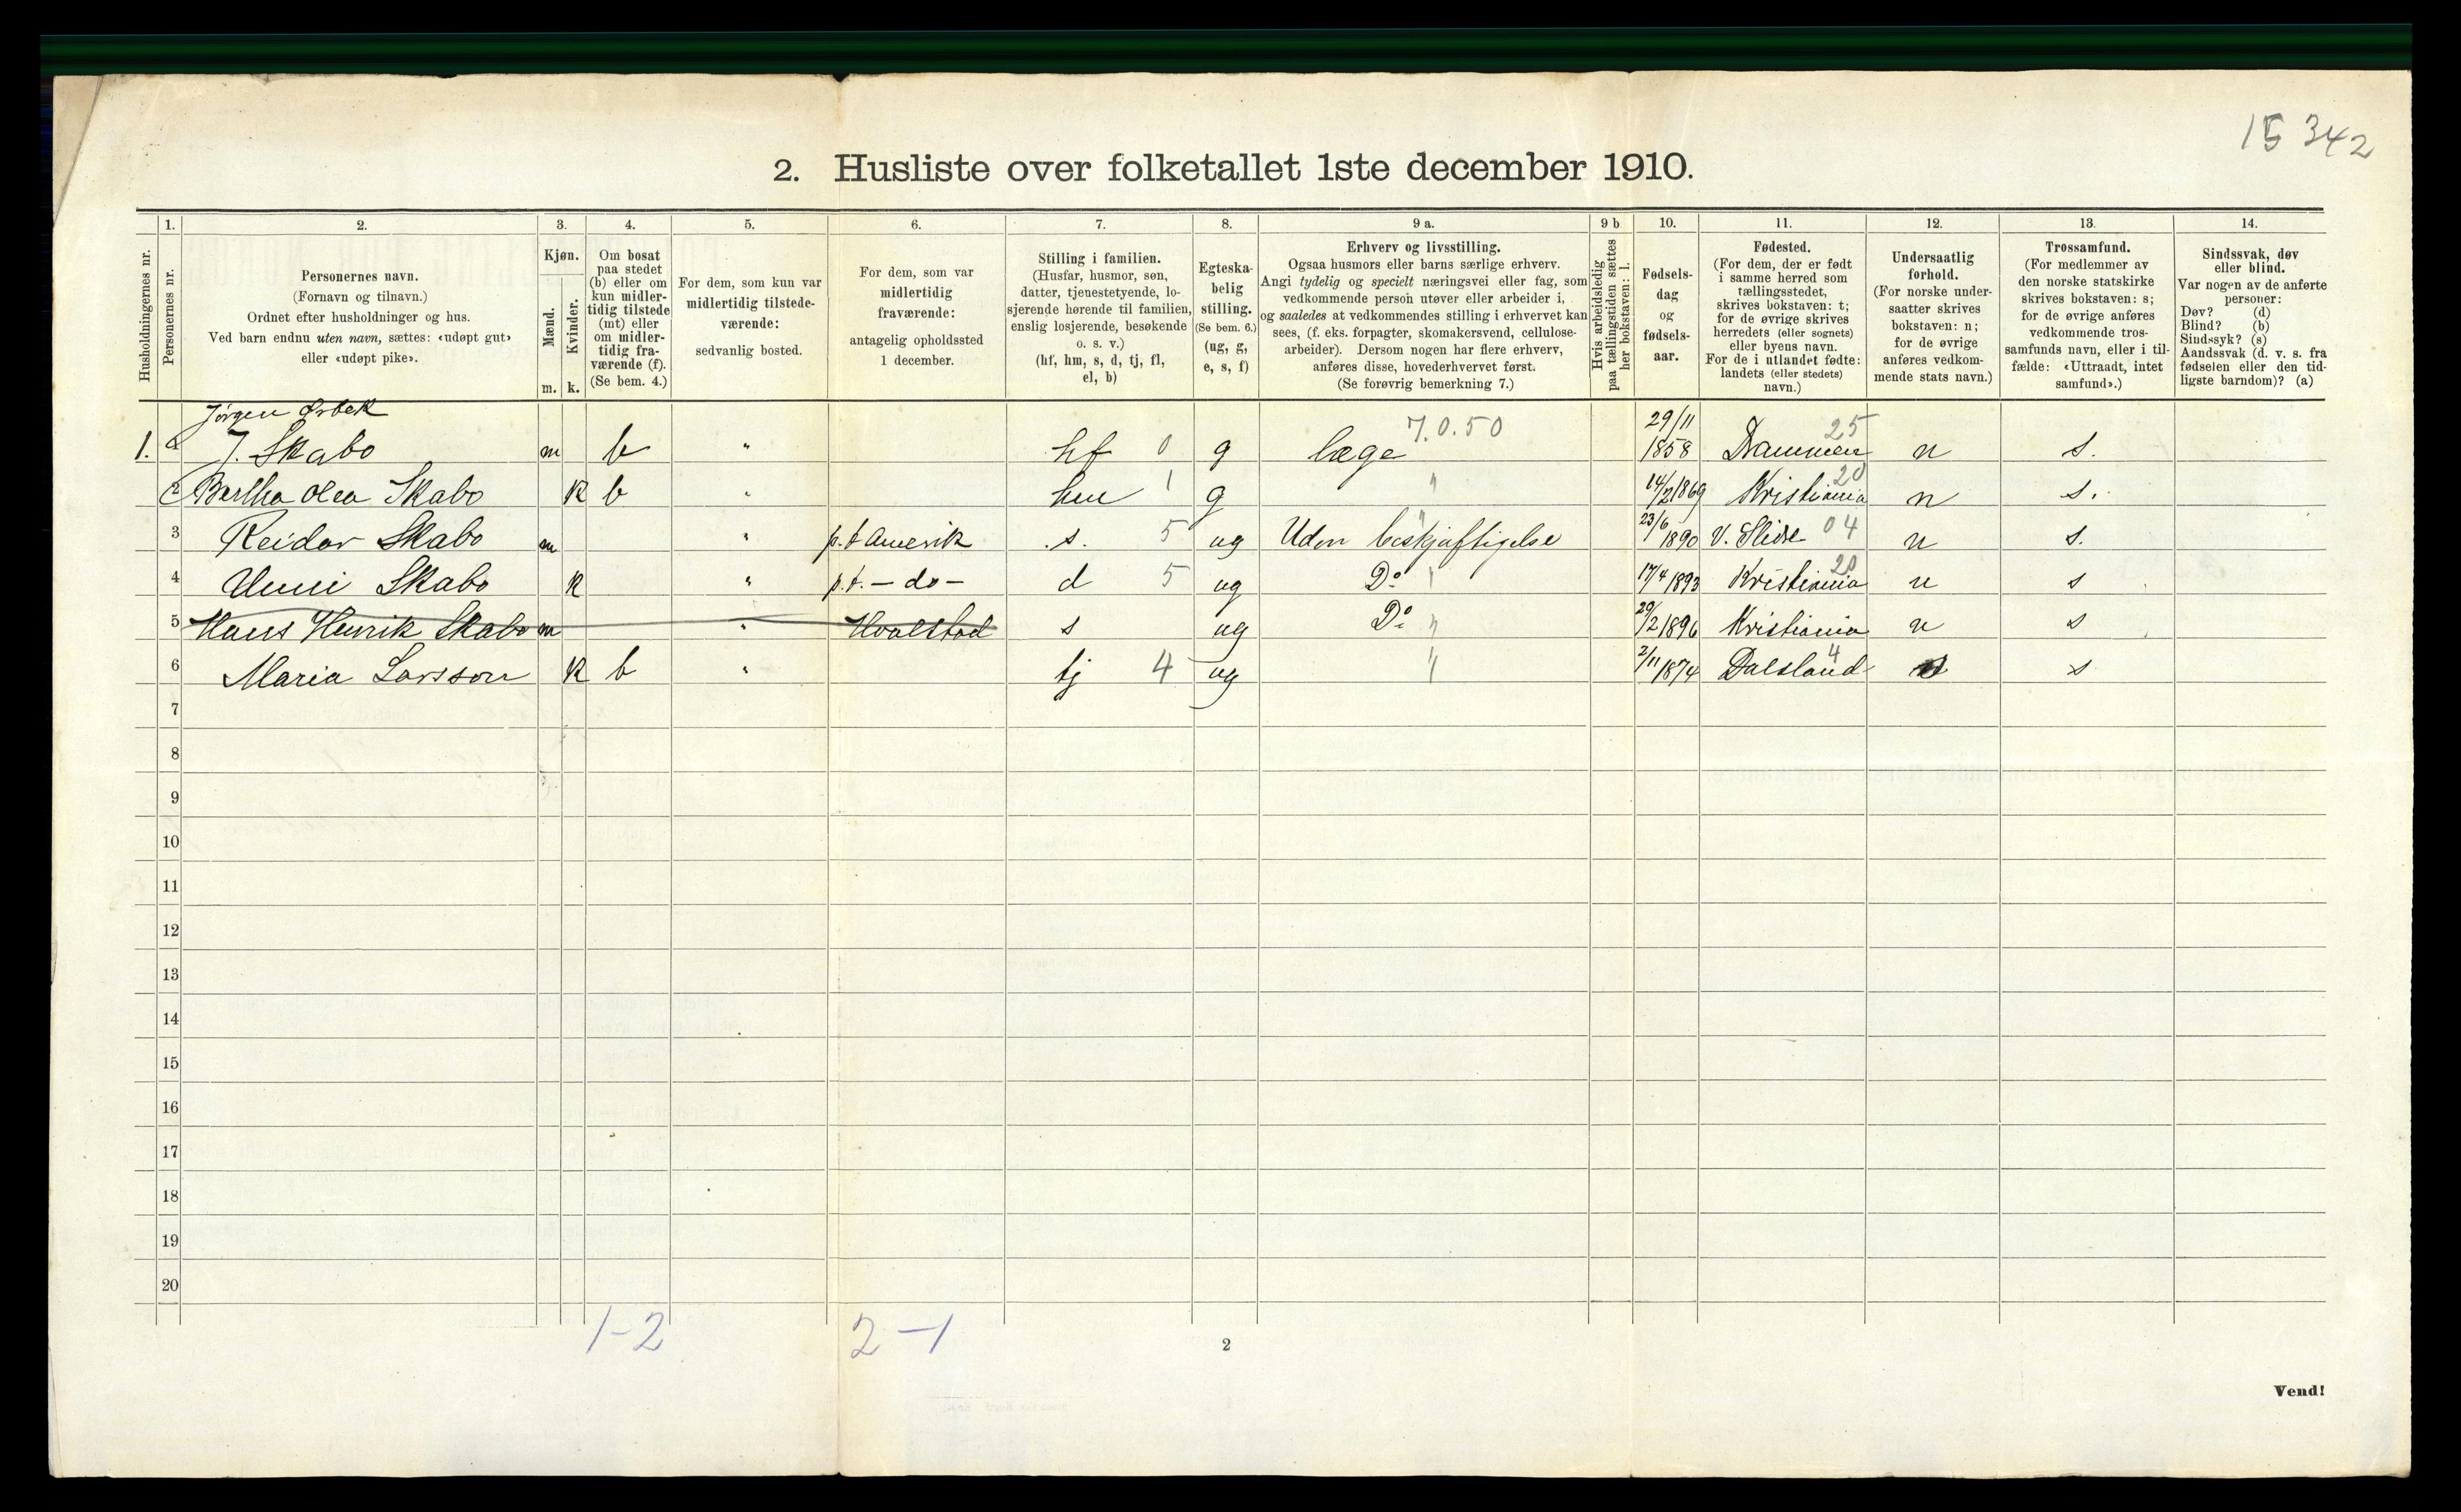 15 342
2. Husliste over folketallet 1ste december 1910.
1. 2. 3. 4. 5. 6. 7. 8. 9 a. 9 b 10. 11. 12. 13. 14.
Husholdningernes nr.
Personernes nr.
Personernes navn.
(Fornavn og tilnavn.)
Ordnet efter husholdninger og hus.
Ved barn endnu uten navn, sættes: «udøpt gut»
eller «udøpt pike».
Kjøn.
Mænd.
Kvinder.
m. k.
Om bosat
paa stedet
(b) eller om
kun midler-
tidig tilstede
(mt) eller
om midler-
tidig fra-
værende (f).
(Se bem. 4.)
For dem, som kun var
midlertidig tilstede-
værende:
sedvanlig bosted.
For dem, som var
midlertidig
fraværende:
antagelig opholdssted
1 december.
Stilling i familien.
(Husfar, husmor, søn,
datter, tjenestetyende, lo-
sjerende hørende til familien,
enslig losjerende, besøkende
o. s. v.)
(hf, hm, s, d, tj, fl,
el, b)
Egteska-
belig
stilling.
(Se bem. 6.)
(ug, g,
e, s, f)
Erhverv og livsstilling.
Ogsaa husmors eller barns særlige erhverv.
Angi tydelig og specielt næringsvei eller fag, som
vedkommende person utøver eller arbeider i,
og saaledes at vedkommendes stilling i erhvervet kan
sees, (f. eks. forpagter, skomakersvend, cellulose-
arbeider). Dersom nogen har flere erhverv,
anføres disse, hovederhvervet først.
(Se forøvrig bemerkning 7.)
Hvis arbeidsledig
paa tællingstiden sættes
her bokstaven: l.
Fødsels-
dag
og
fødsels-
aar.
Fødested.
(For dem, der er født
i samme herred som
tællingsstedet,
skrives bokstaven: t;
for de øvrige skrives
herredets (eller sognets)
eller byens navn.
For de i utlandet fødte:
landets (eller stedets)
navn.)
Undersaatlig
forhold.
(For norske under-
saatter skrives
bokstaven: n;
for de øvrige
anføres vedkom-
mende stats navn.)
Trossamfund.
(For medlemmer av
den norske statskirke
skrives bokstaven: s;
for de øvrige anføres
vedkommende tros-
samfunds navn, eller i til-
fælde: «Uttraadt, intet
samfund».)
Sindssvak, døv
eller blind.
Var nogen av de anførte
personer:
Døv? (d)
Blind? (b)
Sindssyk? (s)
Aandssvak (d. v. s. fra
fødselen eller den tid-
ligste barndom)? (a)
Jørgen Ørbek
1. J. Skabo m b " hf 0 g læge 7.0.50 29/11 1858 Drammen 25 n s.
2 Bertha Olea Skabo k b " hm 1 g " 14/2 1869 Kristiania 20 n s.
3 Reidar Skabo m " p.t Amerik s. 5 ug Uden beskjæftigelse " 23/6 1890 V. Slidre 04 n s.
4 Unni Skabo k " p.t. - do - d 5 ug Do " 17/4 1893 Kristiania 20 n s
5 Hans Henrik Skabo m " Hvalstad s ug Do " 29/2 1896 Kristiania n s
6 Maria Larsson k b " tj 4 ug " 2/11 1874 Dalsland 4 s
7
8
9
10
11
12
13
14
15
16
17
18
19
20
1-2 2-1
2
Vend!